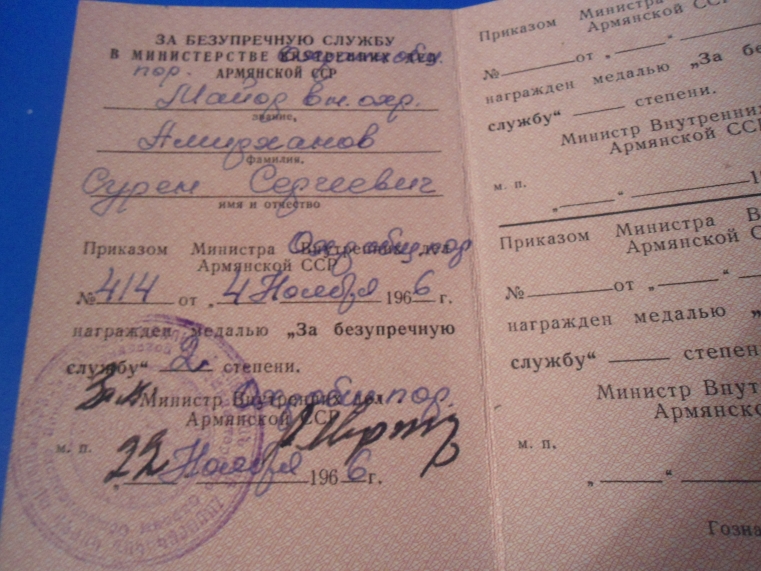 ЗА БЕЗУПРЕЧНУЮ СЛУЖБУ
В МИНИСТЕРСТВЕ ВНУТРЕННИХ ДЕЛ Охр. общ.
пор. АРМЯНСКОЙ ССР
Майор вн. охр.
звание,
Амирханов
фамилия,
Сурен Сергеевич
имя и отчество
Приказом Министра Внутренних дел Охр. общ. пор
Армянской ССР
№ 414 от „4 Ноября 1966 г.
награжден медалью „За безупречную
службу“ 2й степени.
Зам. Министр Внутренних дел Охр. общ. пор.
Армянской ССР
м. п.
„22 Ноября 1966 г.
Приказом Министра
Армянской ССР
№ от „ “
награжден медалью „За бе
службу“ степени.
Министр Внутренних
Армянской ССР
м. п.
„ “ 19
Приказом Министра В
Армянской С
№ от „ “
награжден медалью „
службу“ степен
Министр Внут
Армянско
м. п.
„ “
Гозна